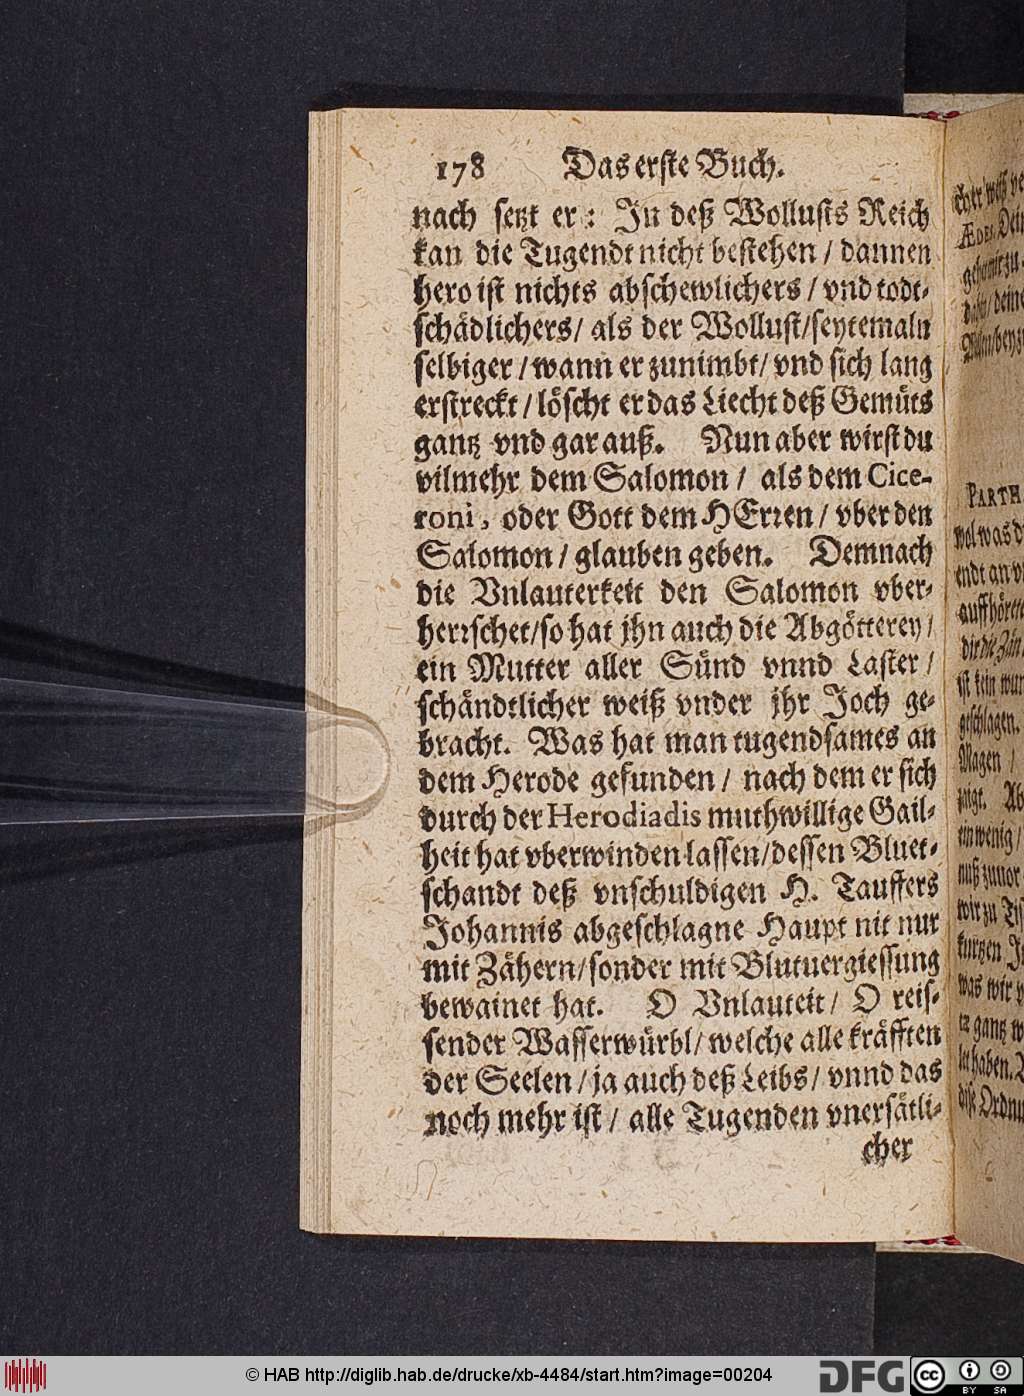 178 Das erste Buch.
nach setzt er: In deß Wollusts Reich
kan die Tugendt nicht bestehen / dannen
hero ist nichts abschewlichers / vnd todt-
schädlichers / als der Wollust / seytemaln
selbiger / wann er zunimbt / vnd sich lang
erstreckt / löscht er das Liecht deß Gemüts
gantz vnd gar auß. Nun aber wirst du
vilmehr dem Salomon / als dem Cice-
roni, oder Gott dem HErren / vber den
Salomon / glauben geben. Demnach
die Vnlauterkeit den Salomon vber-
herrschet / so hat jhn auch die Abgötterey /
ein Mutter aller Sünd vnnd Laster /
schändtlicher weiß vnder jhr Joch ge-
bracht. Was hat man tugendsames an
dem Herode gefunden / nach dem er sich
durch der Herodiadis muthwillige Gail-
heit hat vberwinden lassen / dessen Bluet-
schandt deß vnschuldigen H. Tauffers
Johannis abgeschlagne Haupt nit nur
mit Zähern / sonder mit Blutuergiessung
bewainet hat. O Vnlauteit / O reis-
sender Wasserwürbl / welche alle kräfften
der Seelen / ja auch deß Leibs / vnnd das
noch mehr ist / alle Tugenden vnersätli-
cher
PARTH
© HAB http://diglib.hab.de/drucke/xb-4484/start.htm?image=00204
DFG
cc
BY SA